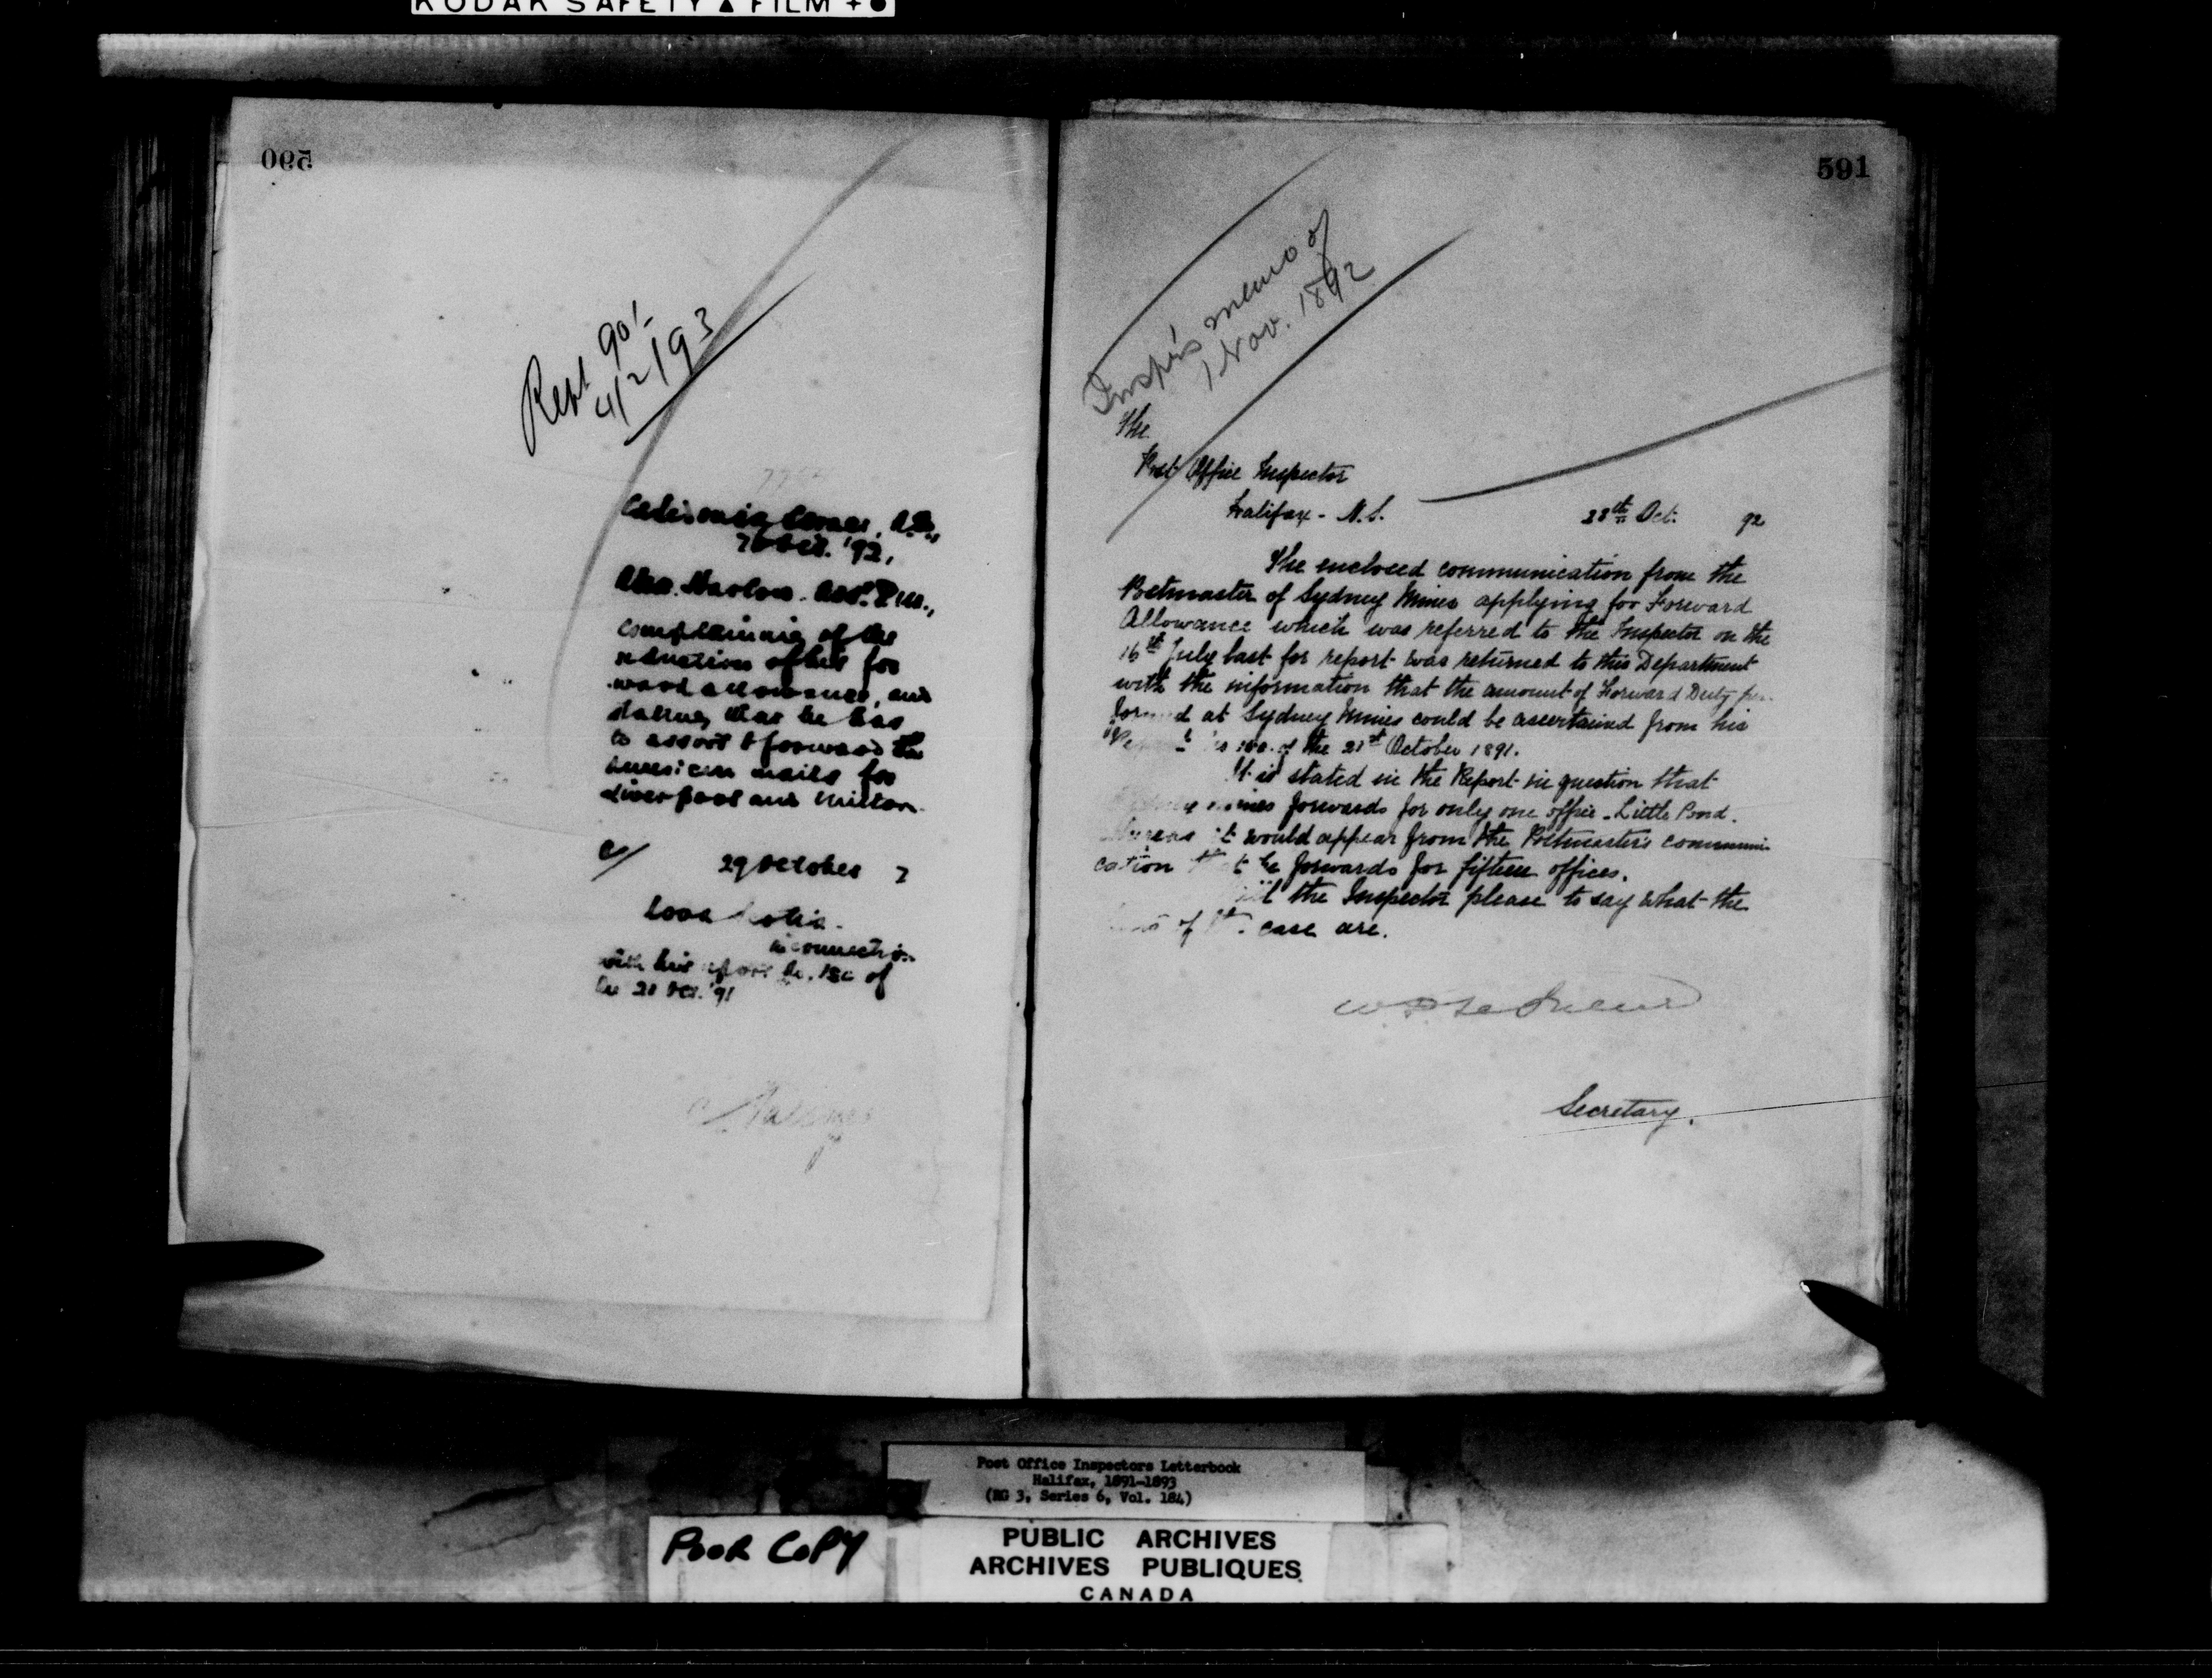 KODAK SAFETY ▲ FILM + ●
590
Rept 90/-
4/2/93
Caledonia Corner,
26 Oct. '92,
Harlow. Asst. P.M.,
complaining of the
reduction of his for
ward allowance, and
stating that he has
to assort & forward the
American mails for
Liverpool and Milton.
29 October 2
Nova Scotia.
in connection
with his report No. 180 of
the 21 Oct. '91
591
Inspr's memo of
1 Nov. 1892
The
Post Office Inspector
Halifax - N.S.
28th Oct. 92
The enclosed communication from the
Postmaster of Sydney Mines applying for Forward
Allowance which was referred to the Inspector on the
16th July last for report was returned to this Department
with the information that the amount of Forward Duty per
formed at Sydney Mines could be ascertained from his
Report No 180. of the 21st October 1891.
It is stated in the Report in question that
Sydney Mines forwards for only one office - Little Pond.
Whereas it would appear from the Postmaster's communi-
cation that he forwards for fifteen offices.
Will the Inspector please to say what the
of the case are.
Secretary.
Post Office Inspectors Letterbook
Halifax, 1891-1893
(RG 3, Series 6, Vol. 184)
POOR COPY
PUBLIC ARCHIVES
ARCHIVES PUBLIQUES
CANADA